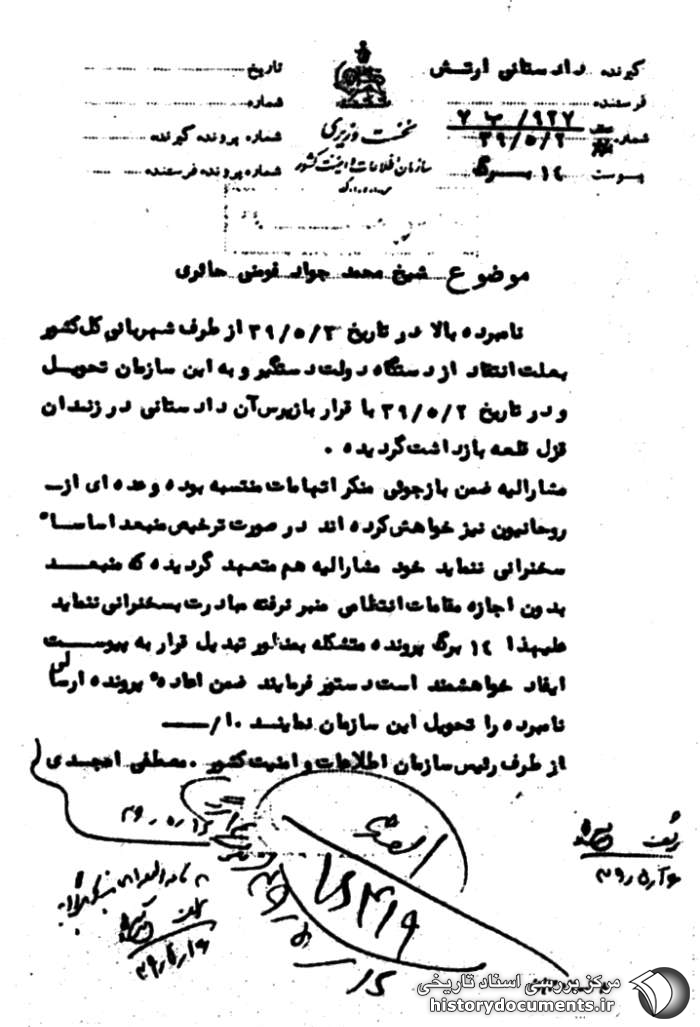 گیرنده دادستانی ارتش
فرستنده
شماره ۹۲۷/ ب ۲
۳۹/۵/۲
پیوست ۱۴ برگ
نخست وزیری
سازمان اطلاعات و امنیت کشور
س.ا.و.ا.ک
تاریخ
شماره
شماره پرونده گیرنده
شماره پرونده فرستنده
موضوع شیخ محمد جواد فومنی حائری
نامبرده بالا در تاریخ ۳۹/۵/۳ از طرف شهربانی کل کشور
بعلت انتقاد از دستگاه دولت دستگیر و به این سازمان تحویل
و در تاریخ ۳۹/۵/۲ با قرار بازپرس آن دادستانی در زندان
قزل قلعه بازداشت گردیده .
مشارالیه ضمن بازجوئی منکر اتهامات منتسبه بوده و عده ای از
روحانیون نیز خواهش کرده اند در صورت ترخیص منبعد اساسا"
سخنرانی ننماید خود مشارالیه هم متعهد گردیده که منبعد
بدون اجازه مقامات انتظامی منبر نرفته مبادرت بسخنرانی ننماید
علیهذا ۱۴ برگ پرونده متشکله بمنظور تبدیل قرار به پیوست
ایفاد خواهشمند است دستور فرمایند ضمن اعاده پرونده ارسالی
نامبرده را تحویل این سازمان نمایند ۱۰/
از طرف رئیس سازمان اطلاعات و امنیت کشور . مصطفی امجدی
مرکز بررسی اسناد تاریخی
historydocuments.ir